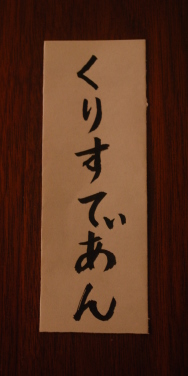 くりすてぃあん